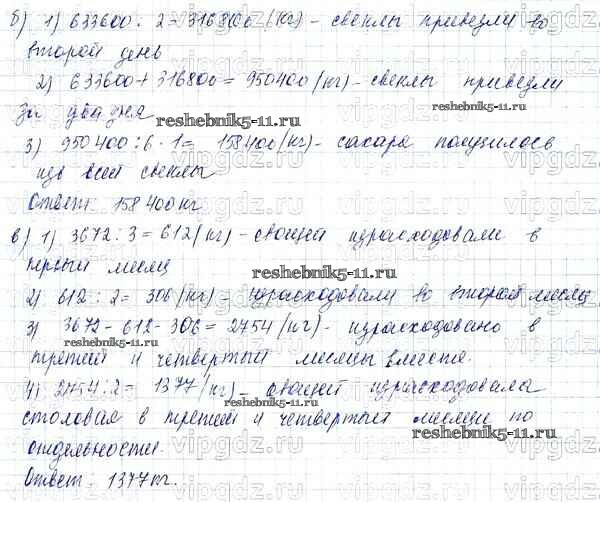 б) 1) 633600 : 2 = 316800 (кг) - свеклы привезли во
второй день
2) 633600 + 316800 = 950400 (кг) - свеклы привезли
за два дня
reshebnik5-11.ru
3) 950400 : 6 · 1 = 158400 (кг) - сахара получилось
из всей свеклы
Ответ: 158400 кг
в) 1) 3672 : 3 = 612 (кг) - овощей израсходовали в
первый месяц
reshebnik5-11.ru
2) 612 : 2 = 306 (кг) - израсходовали во второй месяц
3) 3672 - 612 - 306 = 2754 (кг) - израсходовано в
reshebnik5-11.ru
третий и четвертый месяцы вместе.
4) 2754 : 2 = 1377 (кг) - овощей израсходовала
столовая в третий и четвертый месяцы по
reshebnik5-11.ru
отдельности.
Ответ: 1377 кг.
vipgdz.ru